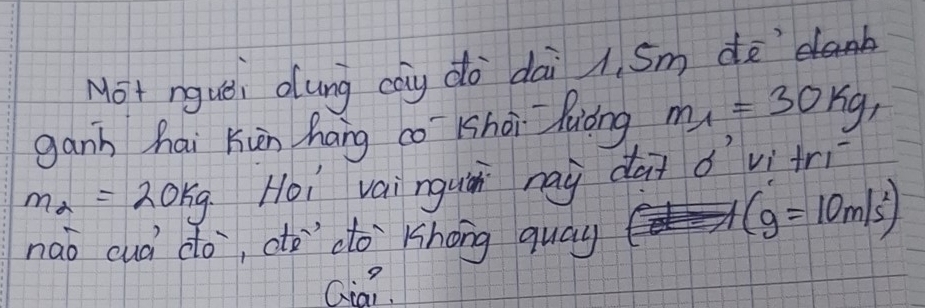 Một người dùng cây đò dài 1,5m để
gánh hai kiện hàng có khối lượng m₁ = 30kg,
m₂ = 20kg. Hỏi vai người này đặt ở vị trí
nào của đò, để đò không quay (g = 10m/s²)
Giải.